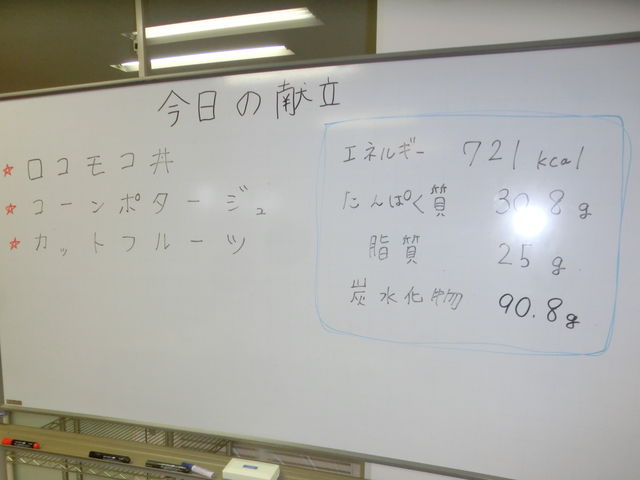 今日の献立
☆ロコモコ丼
☆コーンポタージュ
☆カットフルーツ
エネルギー 721kcal
たんぱく質 30.8g
脂質 25g
炭水化物 90.8g